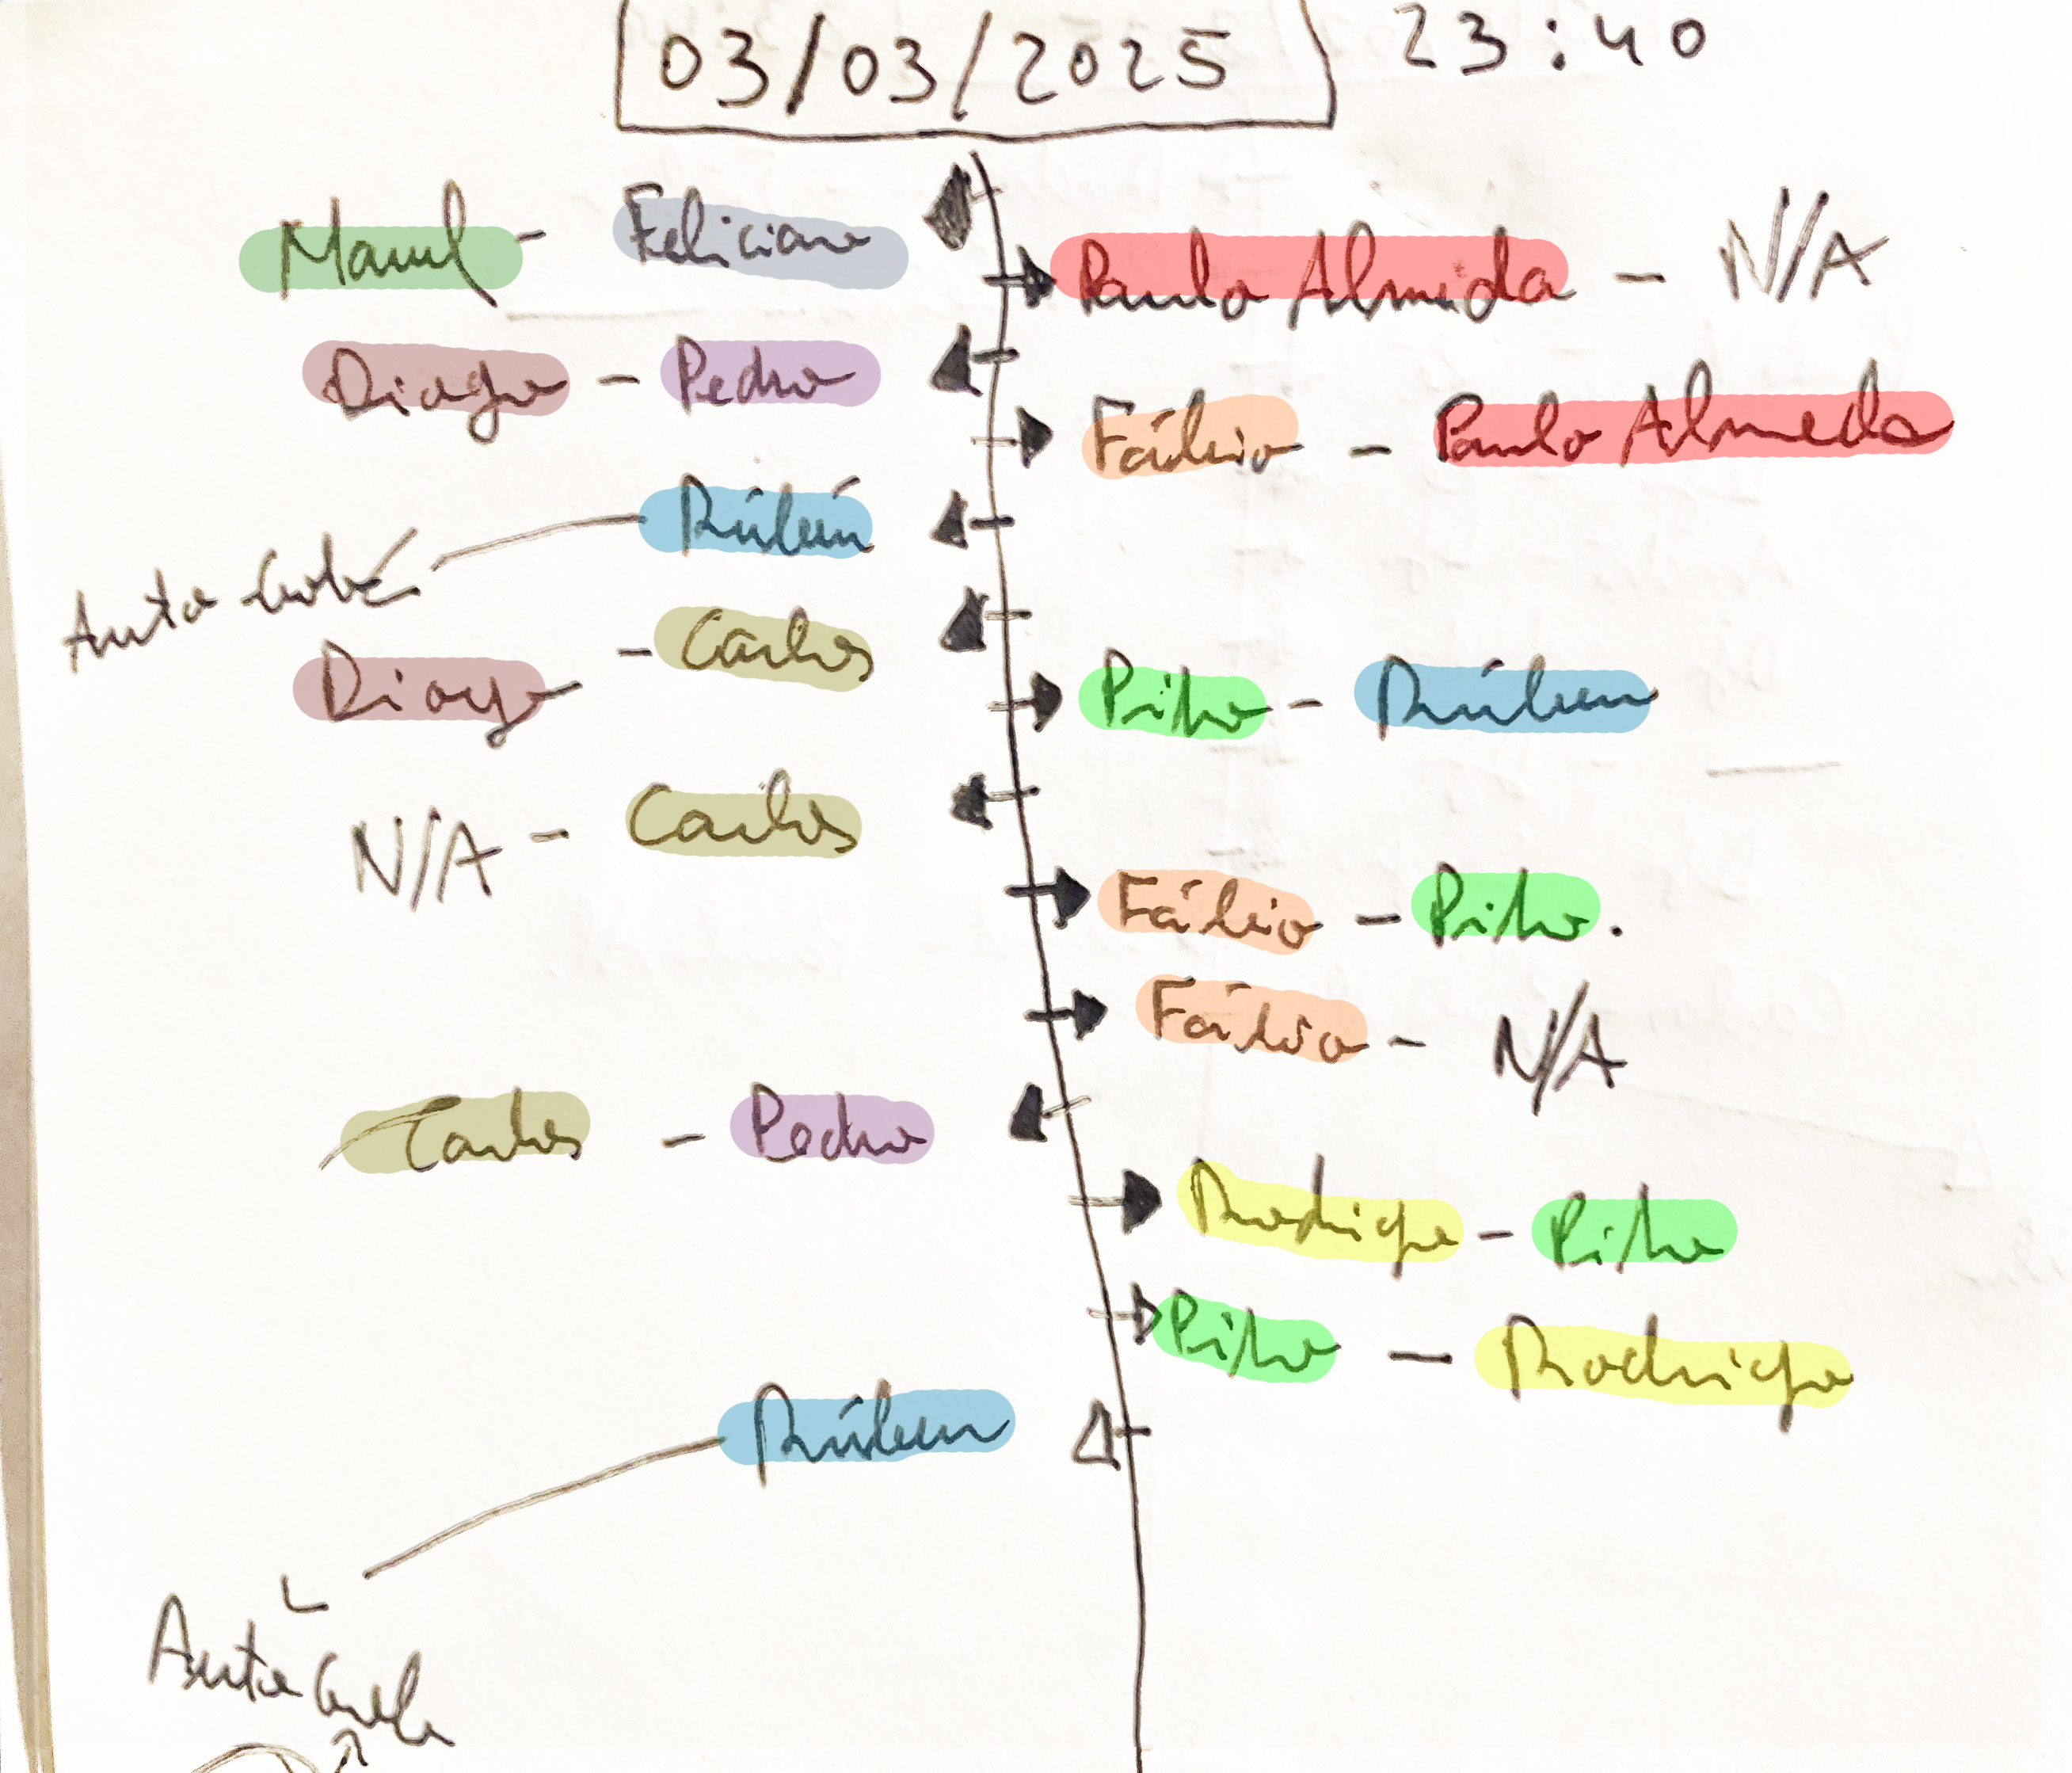 03/03/2025 23:40
Manel - Feliciano
Paulo Almeida - N/A
Diogo - Pedro
Fábio - Paulo Almeida
Rúben
Auto-Golo
Diogo - Carlos
Pitho - Rúben
N/A - Carlos
Fábio - Pitho.
Fábio - N/A
Carlos - Pedro
Rodrigo - Pitho
Pitho - Rodrigo
Rúben
Auto Golo